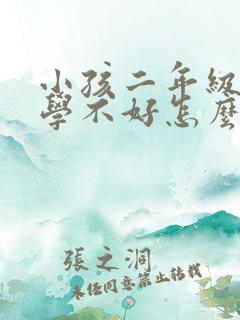 小孩二年級
學不好怎麼
張之洞
未经同意禁止转载